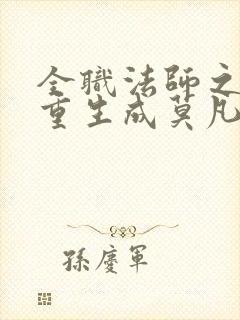 全職法師之
重生成莫凡
孫慶軍